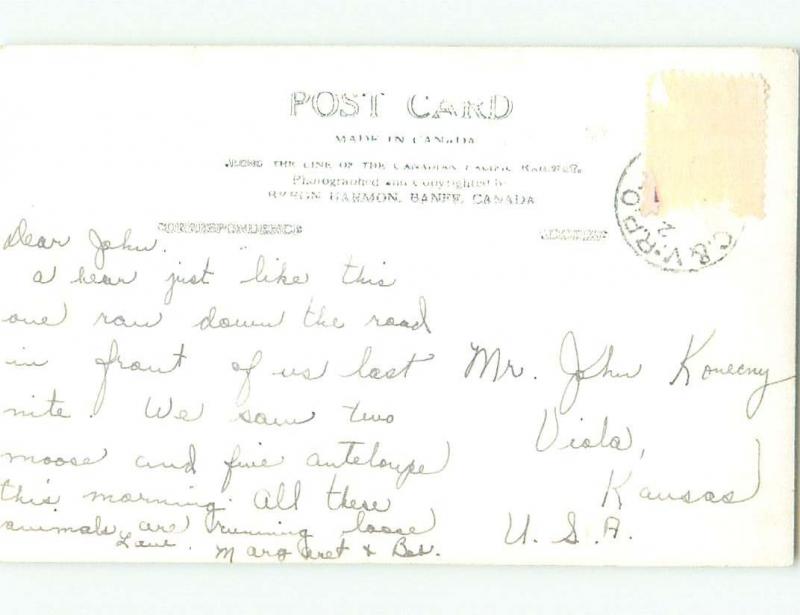 POST CARD
MADE IN CANADA
ALONG THE LINE OF THE CANADIAN PACIFIC RAILWAY.
Photographed and Copyrighted by
BYRON HARMON, BANFF, CANADA
CORRESPONDENCE
ADDRESS
C. & V. R.P.O.
2
Dear John.
a bear just like this
one ran down the road
in front of us last
nite. We saw two
moose and five anteloupe
this morning. All these
animals are running loose
Love. Margaret & Bob.
Mr. John Konecny
Viola,
Kansas
U. S. A.